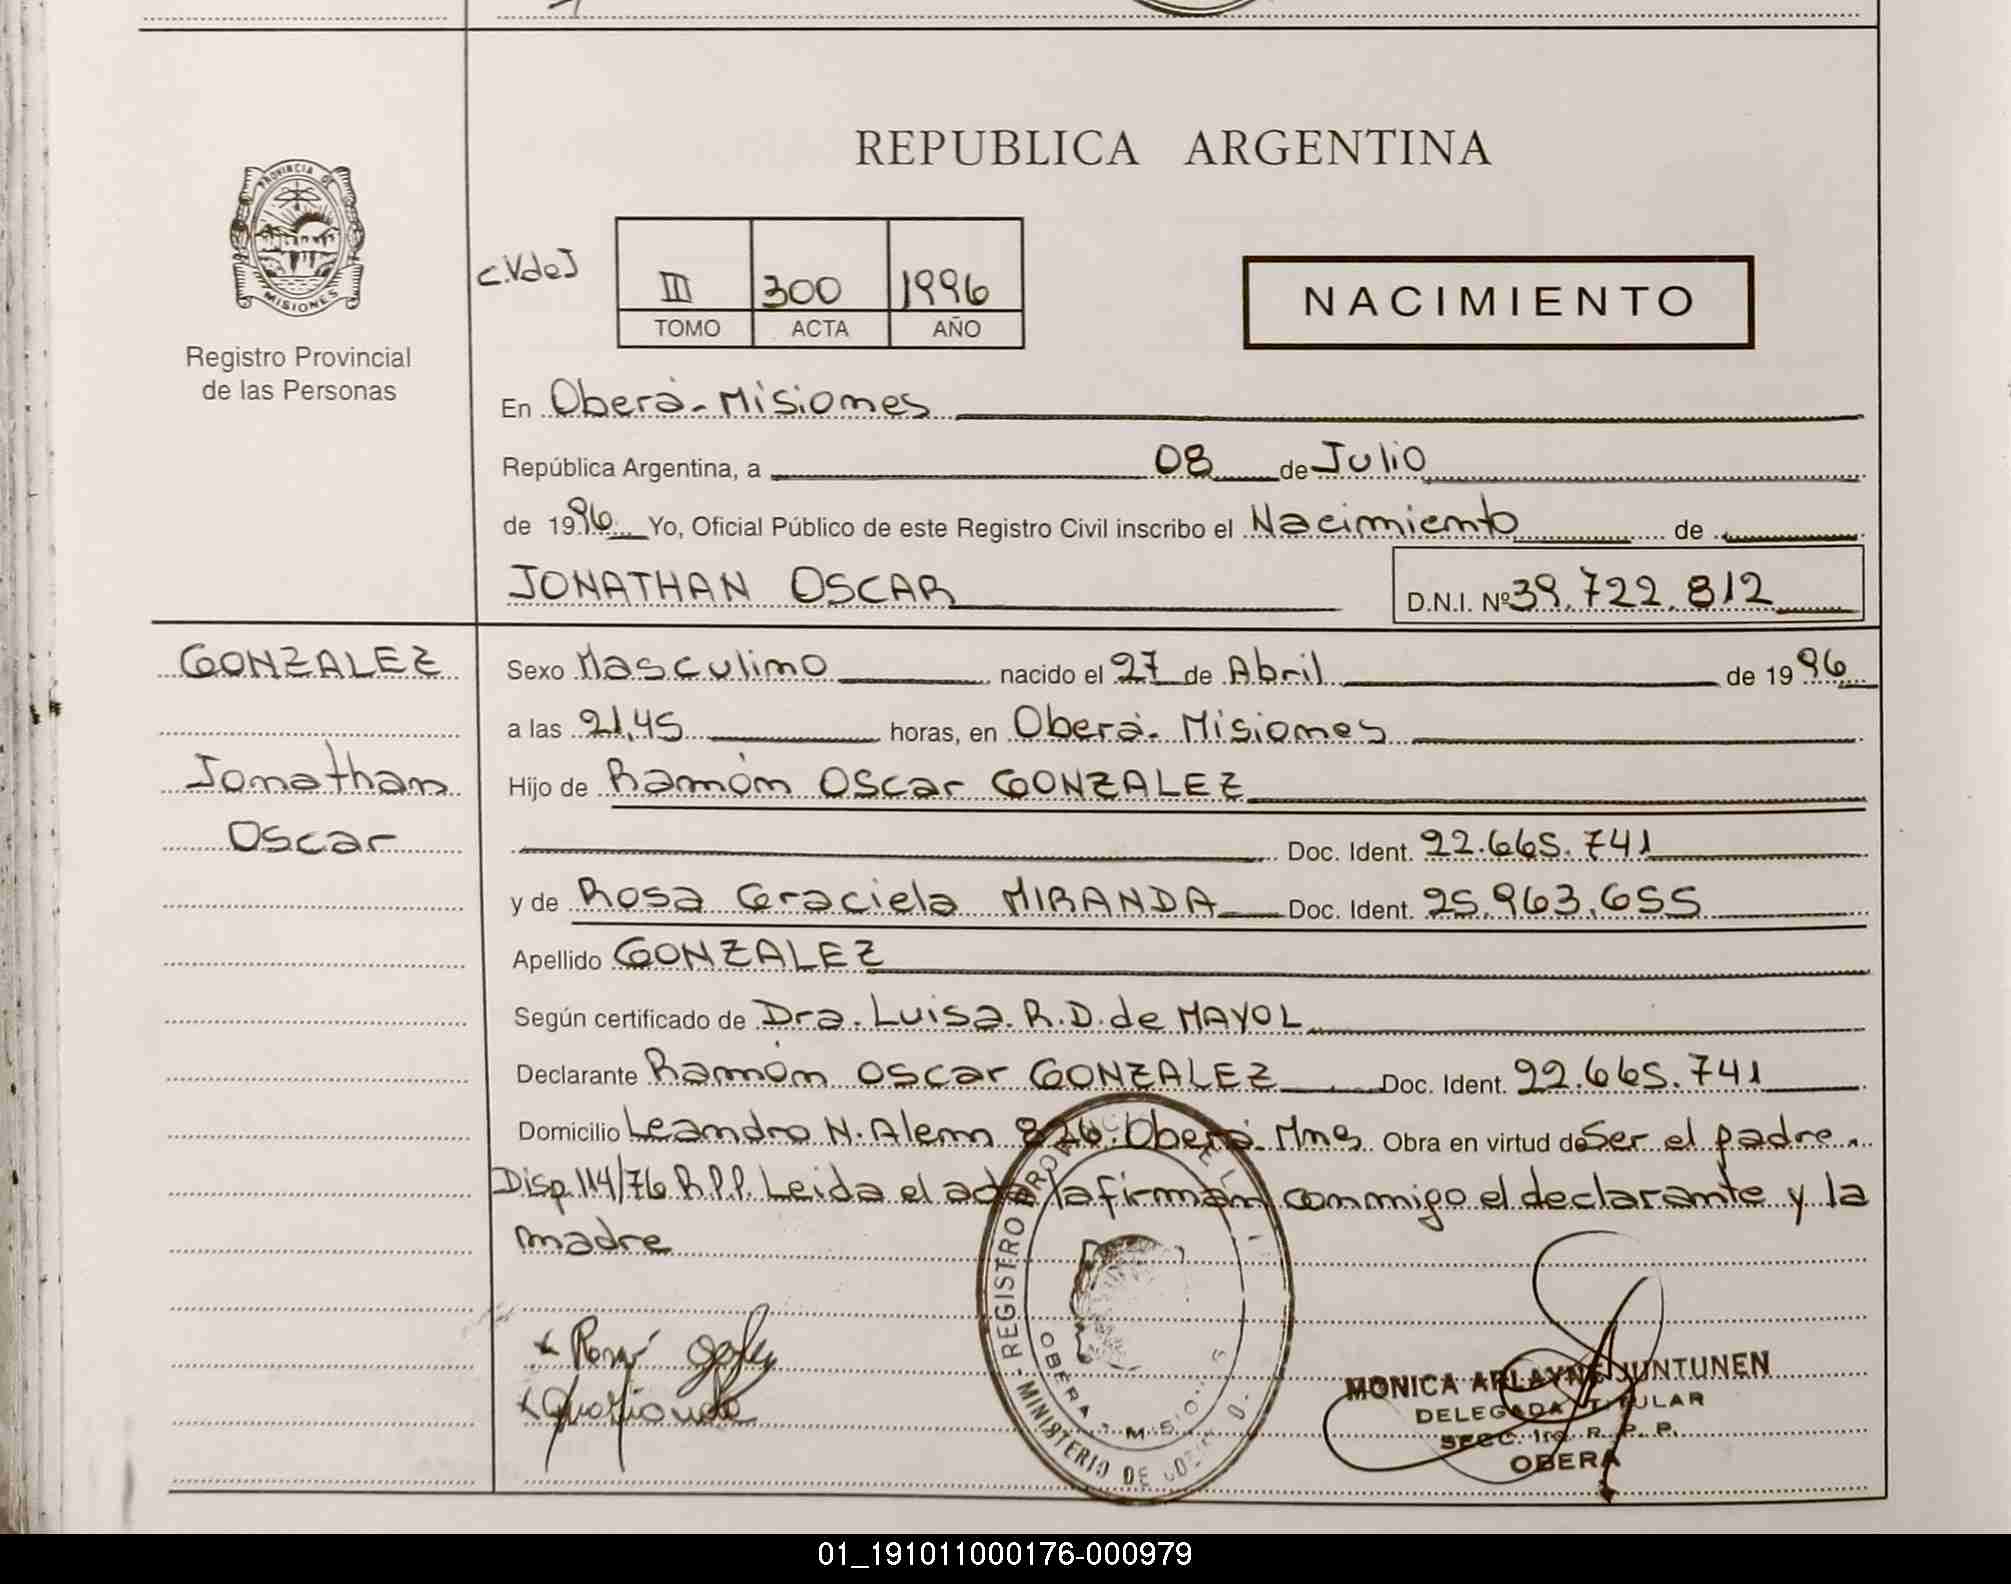 REPUBLICA ARGENTINA
PROVINCIA DE
MISIONES
Registro Provincial
de las Personas
C.VdeJ
III 300 1996
TOMO ACTA AÑO
NACIMIENTO
En Oberá-Misiones
República Argentina, a 08 de Julio
de 1996 Yo, Oficial Público de este Registro Civil inscribo el Nacimiento de
JONATHAN OSCAR D.N.I. Nº 39.722.812
GONZALEZ
Jonathan
Oscar
Sexo Masculino nacido el 27 de Abril de 1996
a las 21,45 horas, en Oberá- Misiones
Hijo de Ramón Oscar GONZALEZ
Doc. Ident. 22.665.741
y de Rosa Graciela MIRANDA Doc. Ident. 25.963.655
Apellido GONZALEZ
Según certificado de Dra. Luisa. R.D. de MAYOL
Declarante Ramón Oscar GONZALEZ Doc. Ident. 22.665.741
Domicilio Leandro N. Alem 826. Oberá. Mnes Obra en virtud de Ser el padre.
Disp. 114/76 R.P.P. Leida el acta la firman conmigo el declarante y la
madre
REGISTRO PROVINCIAL DE L
MINISTERIO DE
OBERA
MONICA ARLAYNE JUNTUNEN
DELEGADA TITULAR
SECC. 1ra. R. P. P.
OBERA
01_191011000176-000979